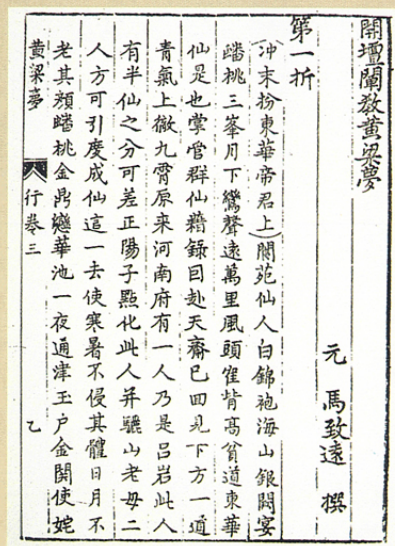 開壇闡教黃粱夢
元　馬致遠　撰
第一折
（冲末扮東華帝君上）閬苑仙人白錦袍海山銀闕宴
蟠桃三峯月下鸞聲遠萬里風頭隺背高貧道東華
仙是也掌管群仙籍錄因赴天齋已回見下方一道
青氣上徹九霄原來河南府有一人乃是呂岩此人
有半仙之分可差正陽子點化此人并驪山老母二
人方可引度成仙這一去使寒暑不侵其體日月不
老其顏蟠桃金鼎戀華池一夜通津玉户金関使姹
黄粱夢
行奉三
乙